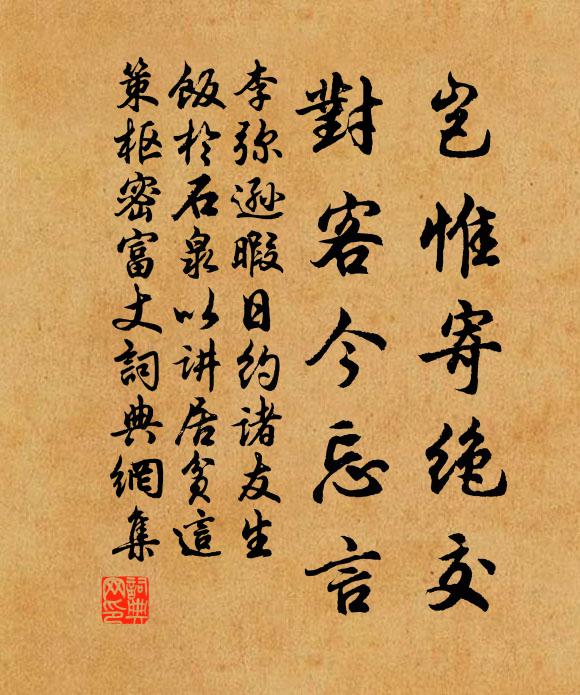 岂惟寄绝交
對客今忘言
李弥遜暇日约諸友生
飯於石泉以讲居贫這
策枢密富丈詞典網集
詞典网印